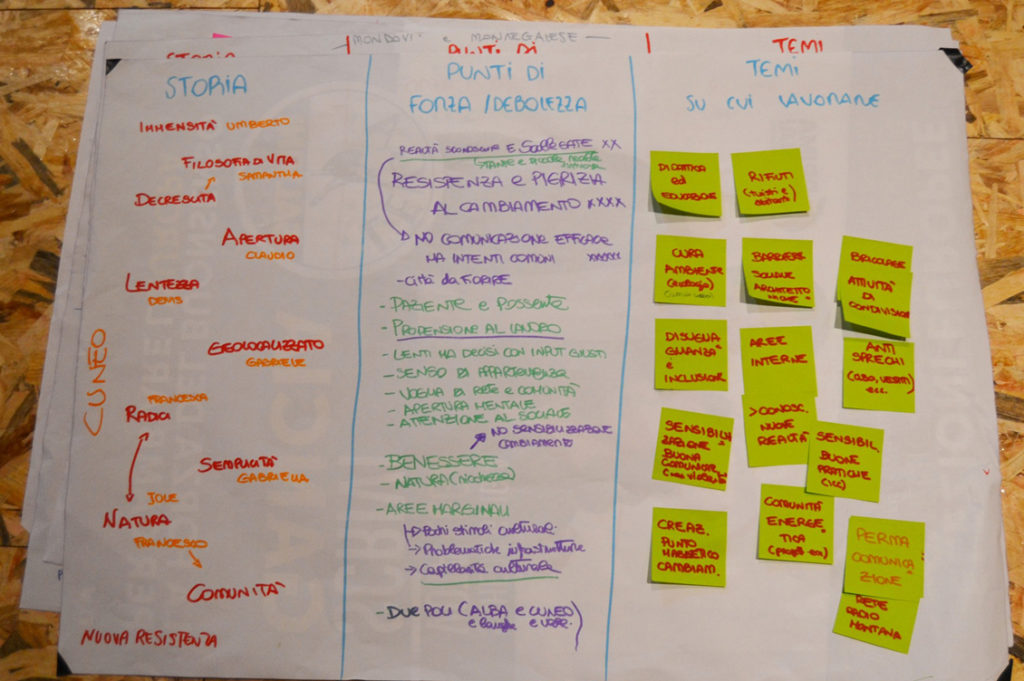 MONDOVI' e MONREGALESE
STORIA
PUNTI DI
TEMI
STORIA
IMMENSITÀ UMBERTO
FILOSOFIA DI VITA
SAMANTHA
DECRESCITA
APERTURA
CLAUDIO
LENTEZZA
DENIS
CUNEO
GEOLOCALIZZATO
GABRIELE
FRANCESCA
RADICI
SEMPLICITÀ
GABRIELLA
JOLE
NATURA
FRANCESCO
COMUNITÀ
NUOVA RESISTENZA
PUNTI DI
FORZA / DEBOLEZZA
REALTÀ SCONOSCIUTE E SCOLLEGATE XX
RESISTENZA e
AL CAMBIAMENTO XXXX
NO COMUNICAZIONE EFFICACE
MA INTENTI COMUNI XXXXXX
- Città da FIORIRE
- PAZIENTE e POSSENTE
- PROPENSIONE AL LAVORO
- LENTI MA DECISI CON INPUT GIUSTI
- SENSO DI APPARTENENZA
- VOGLIA DI RETE e COMUNITÀ
- APERTURA MENTALE
- ATTENZIONE AL SOCIALE
NO SENSIBILIZZAZIONE
CAMBIAMENTO
- BENESSERE
- NATURA (ricchezza)
- AREE MARGINALI
→ Pochi stimoli culturali.
→ Problematiche infrastrutture
→ culturale
- DUE POLI (ALBA e CUNEO
e langhe e
TEMI
SU CUI LAVORARE
DIDATTICA
ED
EDUCAZIONE
RIFIUTI
(turisti e
abitanti)
CURA
AMBIENTE
BARRIERE
SOCIALI E
ARCHITETTO
NICHE
BRICOLAGE
ATTIVITÀ
DI
CONDIVISION
DISUGUA
GLIANZA
e
INCLUSIONE
AREE
INTERNE
ANTI
SPRECHI
(CIBO, VESTITI)
ecc.
SENSIBILIZ
ZAZIONE
BUONA
COMUNICAZ.
> CONOSC.
NUOVE
REALTÀ
SENSIBIL.
BUONE
PRATICHE
CREAZ.
PUNTO
MAGNETICO
CAMBIAM.
COMUNITÀ
ENERGE
TICA
PERMA
COMUNICA
ZIONE
RETE
RADIO
MONTANA